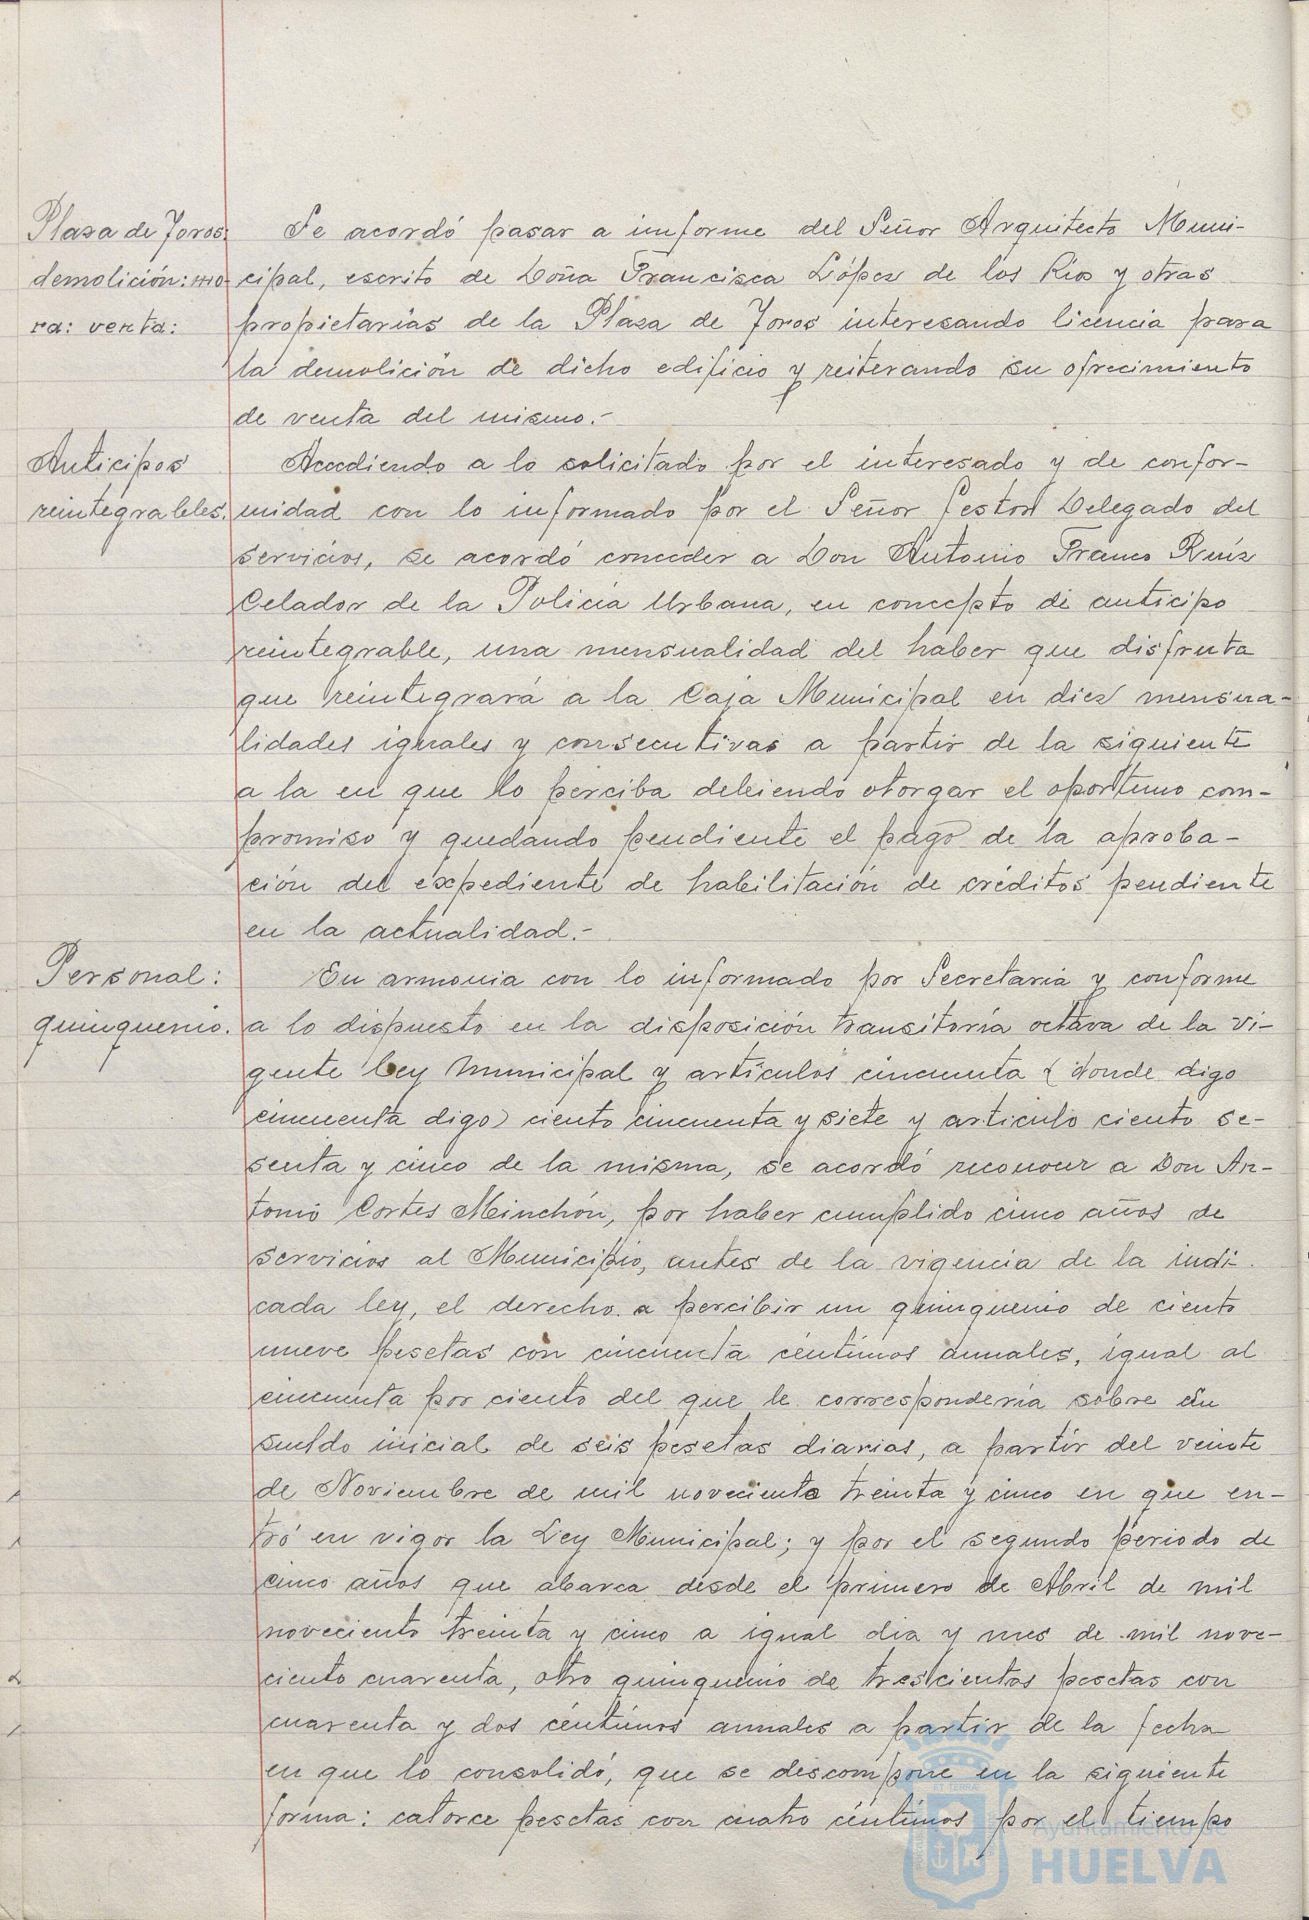 Plaza de Toros:
demolición: mo-
ra: venta:
Se acordó pasar a informe del Señor Arquitecto Muni-
cipal, escrito de Doña Francisca López de los Rios y otras
propietarias de la Plaza de Toros interesando licencia para
la demolición de dicho edificio y reiterando su ofrecimiento
de venta del mismo.-
Anticipos
reintegrables.
Accediendo a lo solicitado por el interesado y de confor-
midad con lo informado por el Señor Gestor Delegado del
servicios, se acordó conceder a Don Antonio Franco Ruíz
Celador de la Policía Urbana, en concepto de anticipo
reintegrable, una mensualidad del haber que disfruta
que reintegrará a la Caja Municipal en diez mensua-
lidades iguales y consecutivas a partir de la siguiente
a la en que lo perciba debiendo otorgar el oportuno com-
promiso y quedando pendiente el pago de la aproba-
ción del expediente de habilitación de créditos pendiente
en la actualidad.-
Personal:
quinquenio.
En armonia con lo informado por Secretaría y conforme
a lo dispuesto en la disposición transitoría octava de la vi-
gente ley Municipal y artículos cincuenta (donde digo
cincuenta digo) ciento cincuenta y siete y articulo ciento se-
senta y cinco de la misma, se acordó reconocer a Don An-
tonio Cortes Minchón, por haber cumplido cinco años de
servicios al Municipio, antes de la vigencia de la indi-
cada ley, el derecho a percibir un quinquenio de ciento
nueve pesetas con cincuenta céntimos anuales, igual al
cincuenta por ciento del que le correspondería sobre un
sueldo inicial de seis pesetas diarias, a partir del veinte
de Noviembre de mil noveciento treinta y cinco en que en-
tró en vigor la Ley Municipal; y por el segundo periodo de
cinco años que abarca desde el primero de Abril de mil
noveciento treinta y cinco a igual dia y mes de mil nove-
ciento cuarenta, otro quinquenio de trescientas pesetas con
cuarenta y dos céntimos anuales a partir de la fecha
en que lo consolidó, que se descompone en la siguiente
forma: catorce pesetas con cuatro céntimos por el tiempo
Ayuntamiento de
HUELVA